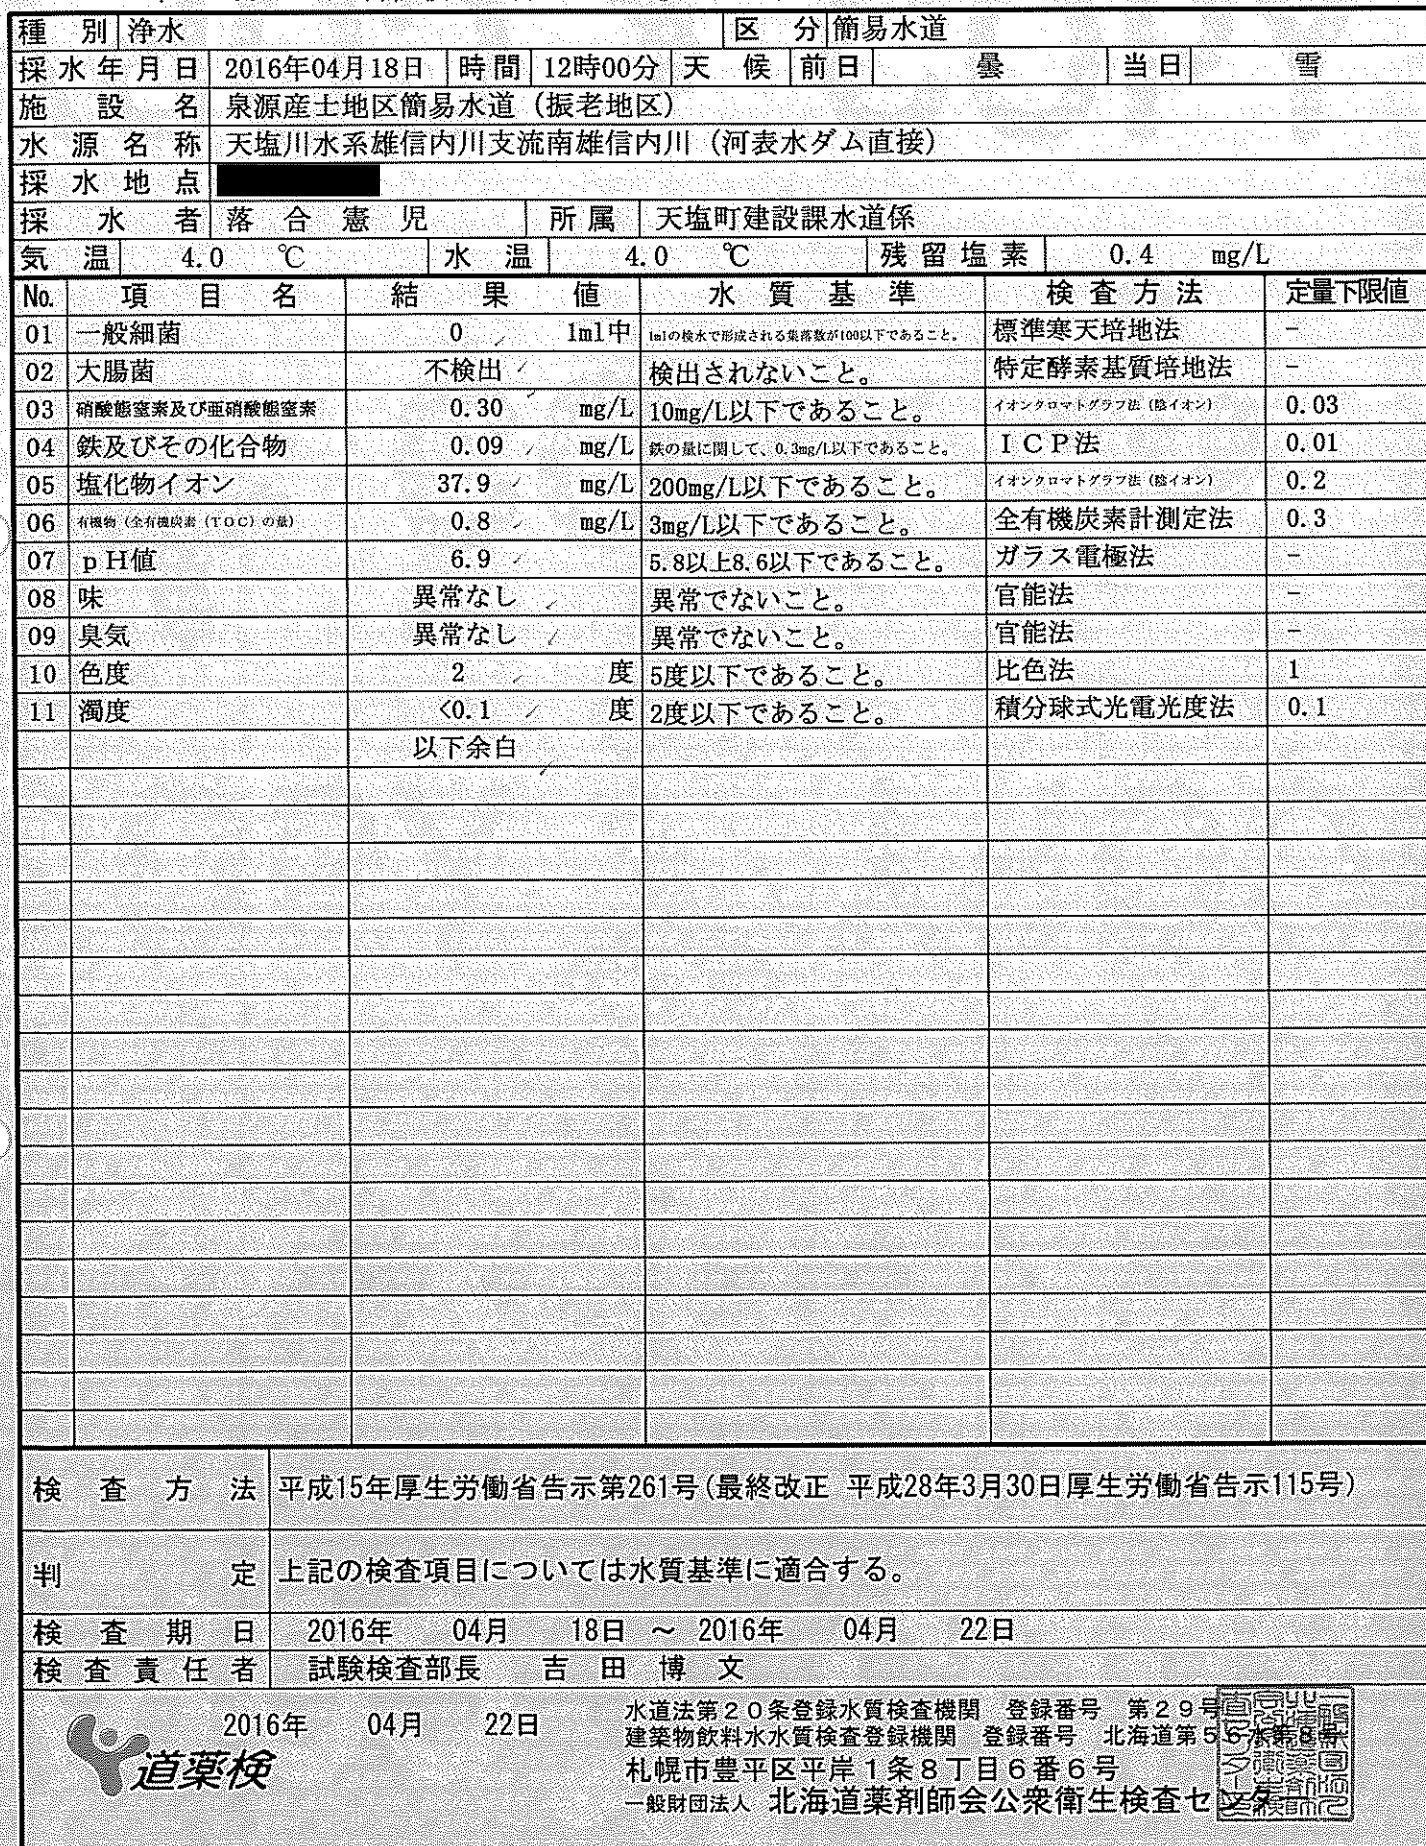 種別 浄水 区分 簡易水道
採水年月日 2016年04月18日 時間 12時00分 天候 前日 曇 当日 雪
施設名 泉源産土地区簡易水道（振老地区）
水源名称 天塩川水系雄信内川支流南雄信内川（河表水ダム直接）
採水地点
採水者 落合憲児 所属 天塩町建設課水道係
気温 4.0 ℃ 水温 4.0 ℃ 残留塩素 0.4 mg/L
No. 項目名 結果値 水質基準 検査方法 定量下限値
01 一般細菌 0 1ml中 1mlの検水で形成される集落数が100以下であること。 標準寒天培地法 -
02 大腸菌 不検出 検出されないこと。 特定酵素基質培地法 -
03 硝酸態窒素及び亜硝酸態窒素 0.30 mg/L 10mg/L以下であること。 イオンクロマトグラフ法（陰イオン） 0.03
04 鉄及びその化合物 0.09 mg/L 鉄の量に関して、0.3mg/L以下であること。 ICP法 0.01
05 塩化物イオン 37.9 mg/L 200mg/L以下であること。 イオンクロマトグラフ法（陰イオン） 0.2
06 有機物（全有機炭素（TOC）の量） 0.8 mg/L 3mg/L以下であること。 全有機炭素計測定法 0.3
07 pH値 6.9 5.8以上8.6以下であること。 ガラス電極法 -
08 味 異常なし 異常でないこと。 官能法 -
09 臭気 異常なし 異常でないこと。 官能法 -
10 色度 2 度 5度以下であること。 比色法 1
11 濁度 <0.1 度 2度以下であること。 積分球式光電光度法 0.1
以下余白
検査方法 平成15年厚生労働省告示第261号(最終改正 平成28年3月30日厚生労働省告示115号)
判定 上記の検査項目については水質基準に適合する。
検査期日 2016年 04月 18日 ～ 2016年 04月 22日
検査責任者 試験検査部長 吉田博文
2016年 04月 22日
道薬検
水道法第20条登録水質検査機関 登録番号 第29号
建築物飲料水水質検査登録機関 登録番号 北海道第56水第8号
札幌市豊平区平岸1条8丁目6番6号
一般財団法人 北海道薬剤師会公衆衛生検査センター